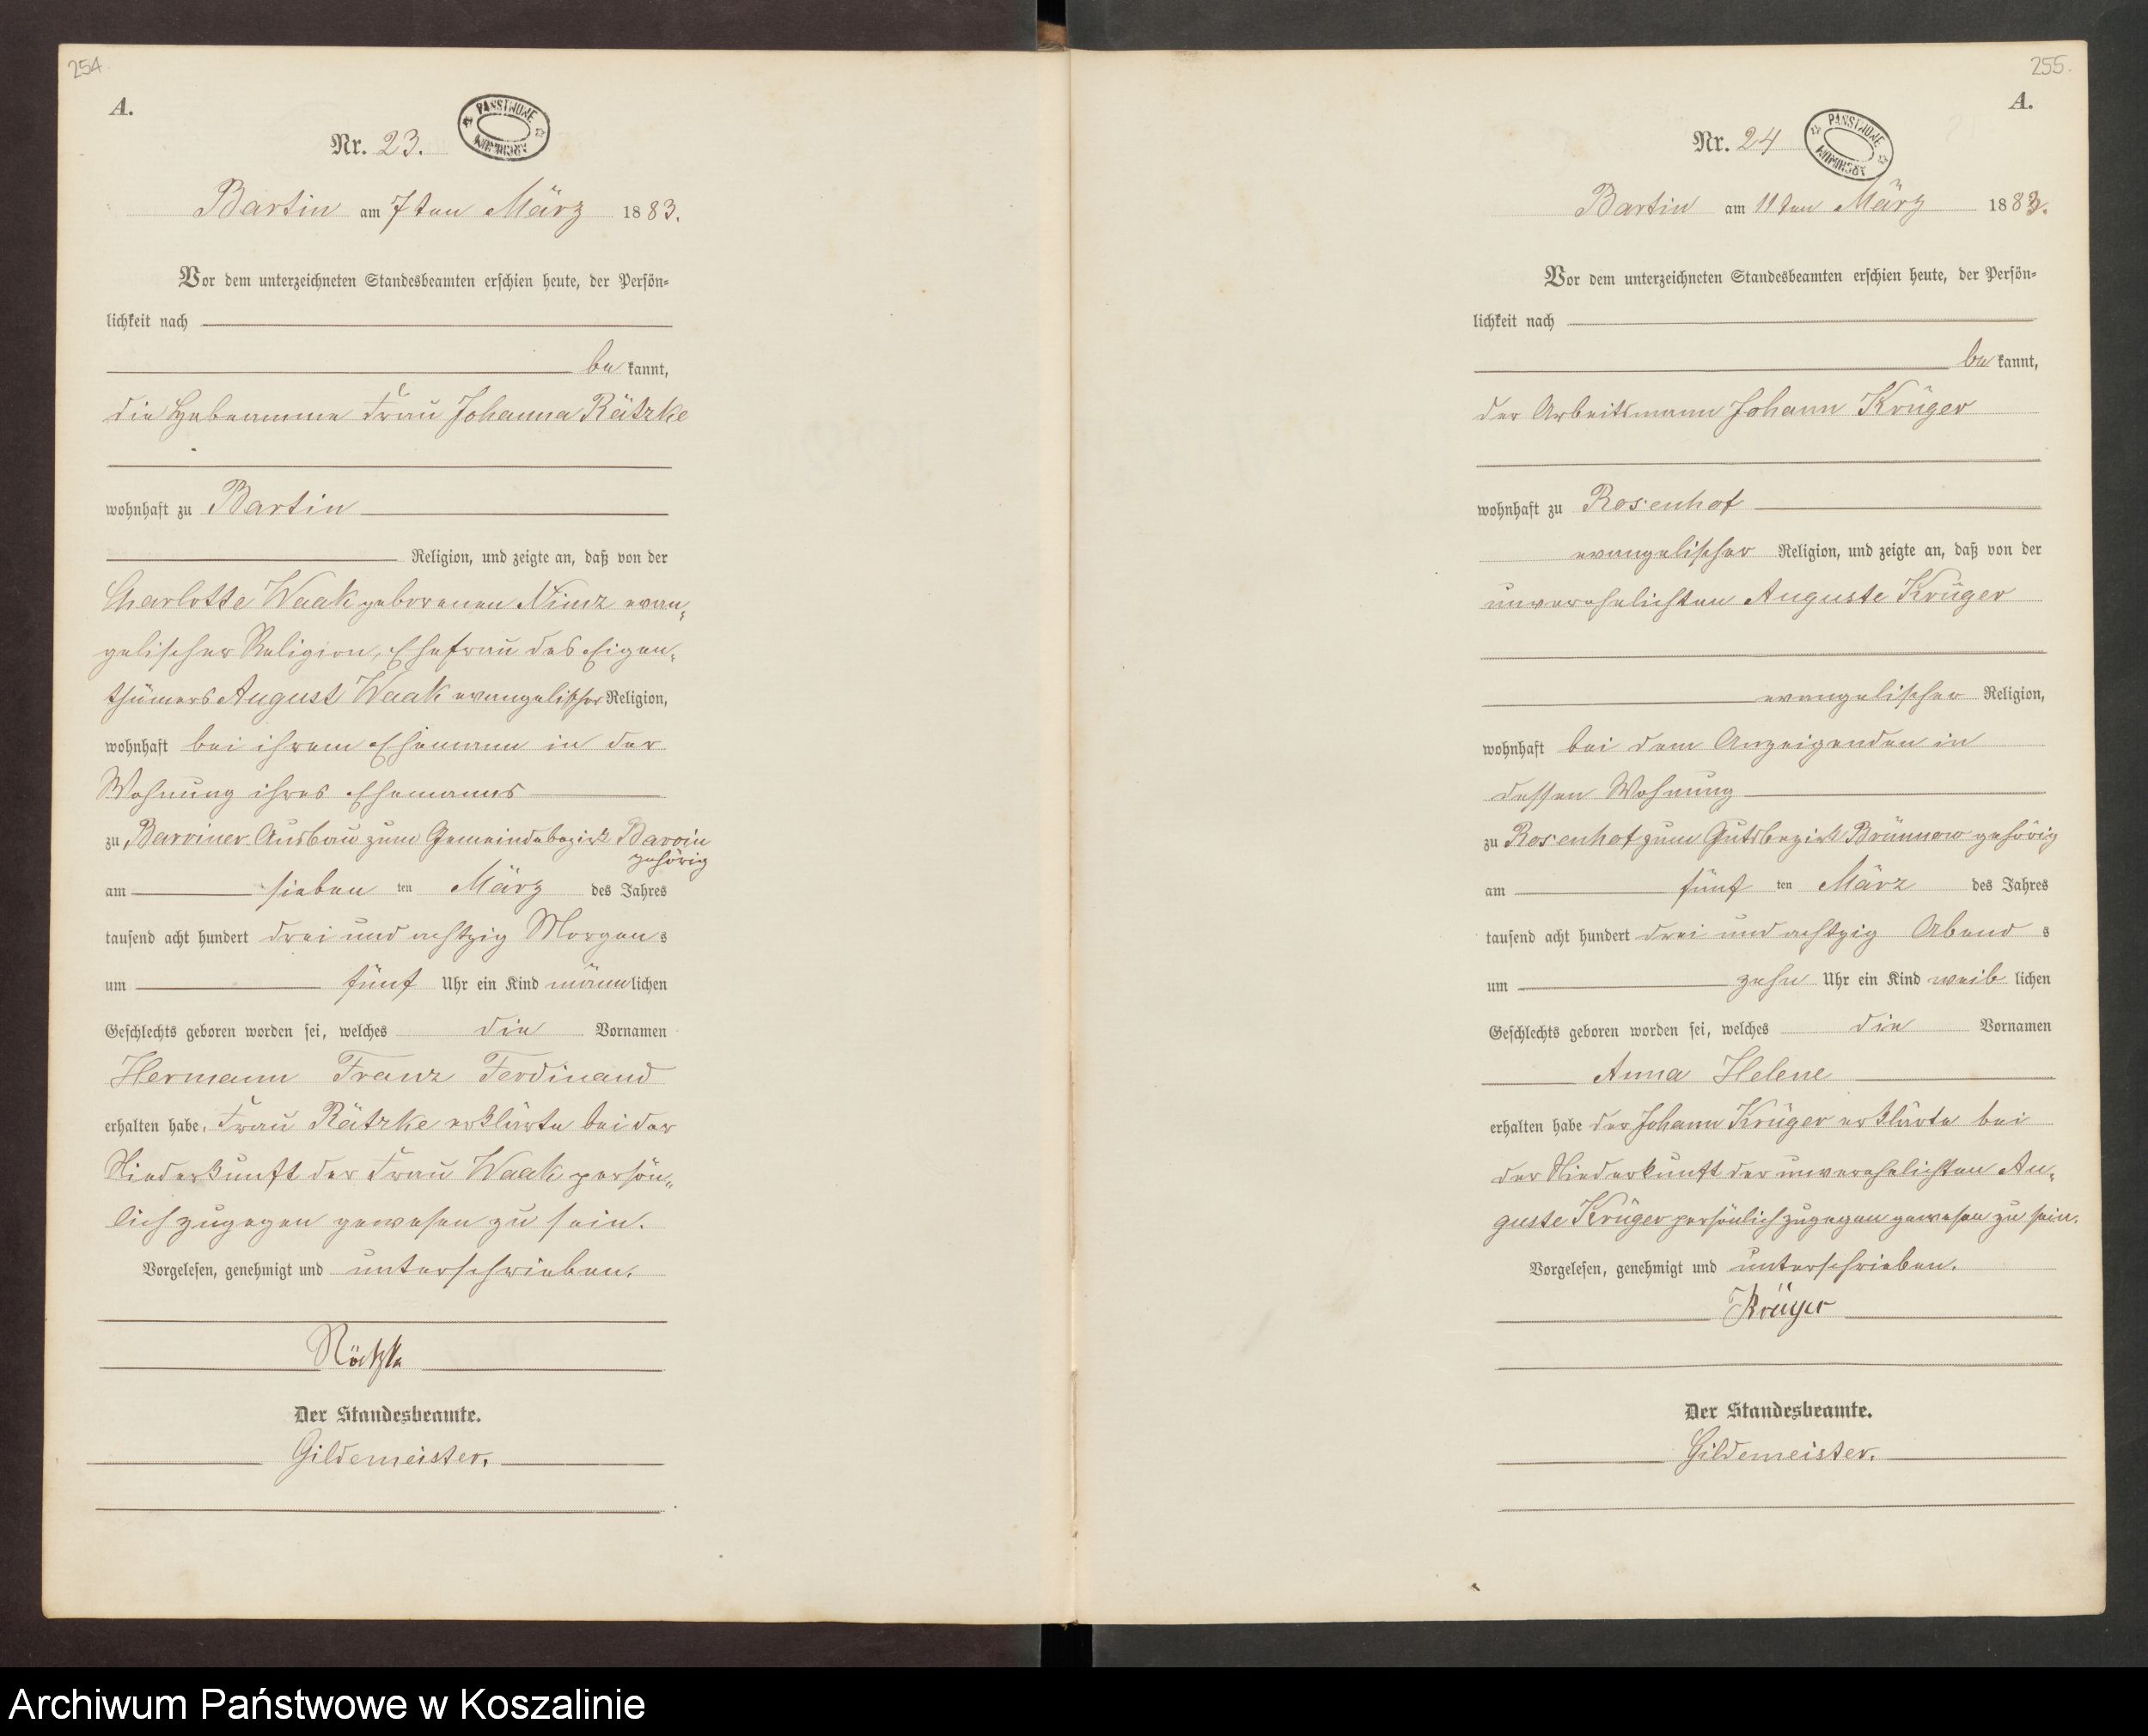 254
A.
PAŃSTWOWE ARCHIWUM
Nr. 23.
Bartin am 7ten März 1883.
Vor dem unterzeichneten Standesbeamten erschien heute, der Persön-
lichkeit nach
be kannt,
die Hebeamme Frau Johanna Rätzke
wohnhaft zu Bartin
Religion, und zeigte an, daß von der
Charlotte Waak geborenen Nimz evan-
gelischer Religion, Ehefrau des Eigen-
thümers August Waak evangelischer Religion,
wohnhaft bei ihrem Ehemann in der
Wohnung ihres Ehemanns
zu Barviner Ausbau zum Gemeindebezirk Barvin
gehörig
am sieben ten März des Jahres
tausend acht hundert drei und achtzig Morgens
um fünf Uhr ein Kind männlichen
Geschlechts geboren worden sei, welches die Vornamen
Hermann Franz Ferdinand
erhalten habe. Frau Rätzke erklärte bei der
Niederkunft der Frau Waak persön-
lich zugegen gewesen zu sein.
Vorgelesen, genehmigt und unterschrieben.
Rätzke
Der Standesbeamte.
Gildemeister.
255.
A.
PAŃSTWOWE ARCHIWUM
Nr. 24
Bartin am 11ten März 1883.
Vor dem unterzeichneten Standesbeamten erschien heute, der Persön-
lichkeit nach
be kannt,
der Arbeitsmann Johann Krüger
wohnhaft zu Rosenhof
evangelischer Religion, und zeigte an, daß von der
unverehelichten Auguste Krüger
evangelischer Religion,
wohnhaft bei dem Anzeigenden in
dessen Wohnung
zu Rosenhof zum Gutsbezirk Brünnow gehörig
am fünf ten März des Jahres
tausend acht hundert drei und achtzig Abend s
um zehn Uhr ein Kind weib lichen
Geschlechts geboren worden sei, welches die Vornamen
Anna Helene
erhalten habe der Johann Krüger erklärte bei
der Niederkunft der unverehelichten Au-
guste Krüger persönlich zugegen gewesen zu sein.
Vorgelesen, genehmigt und unterschrieben.
Krüger
Der Standesbeamte.
Gildemeister.
Archiwum Państwowe w Koszalinie